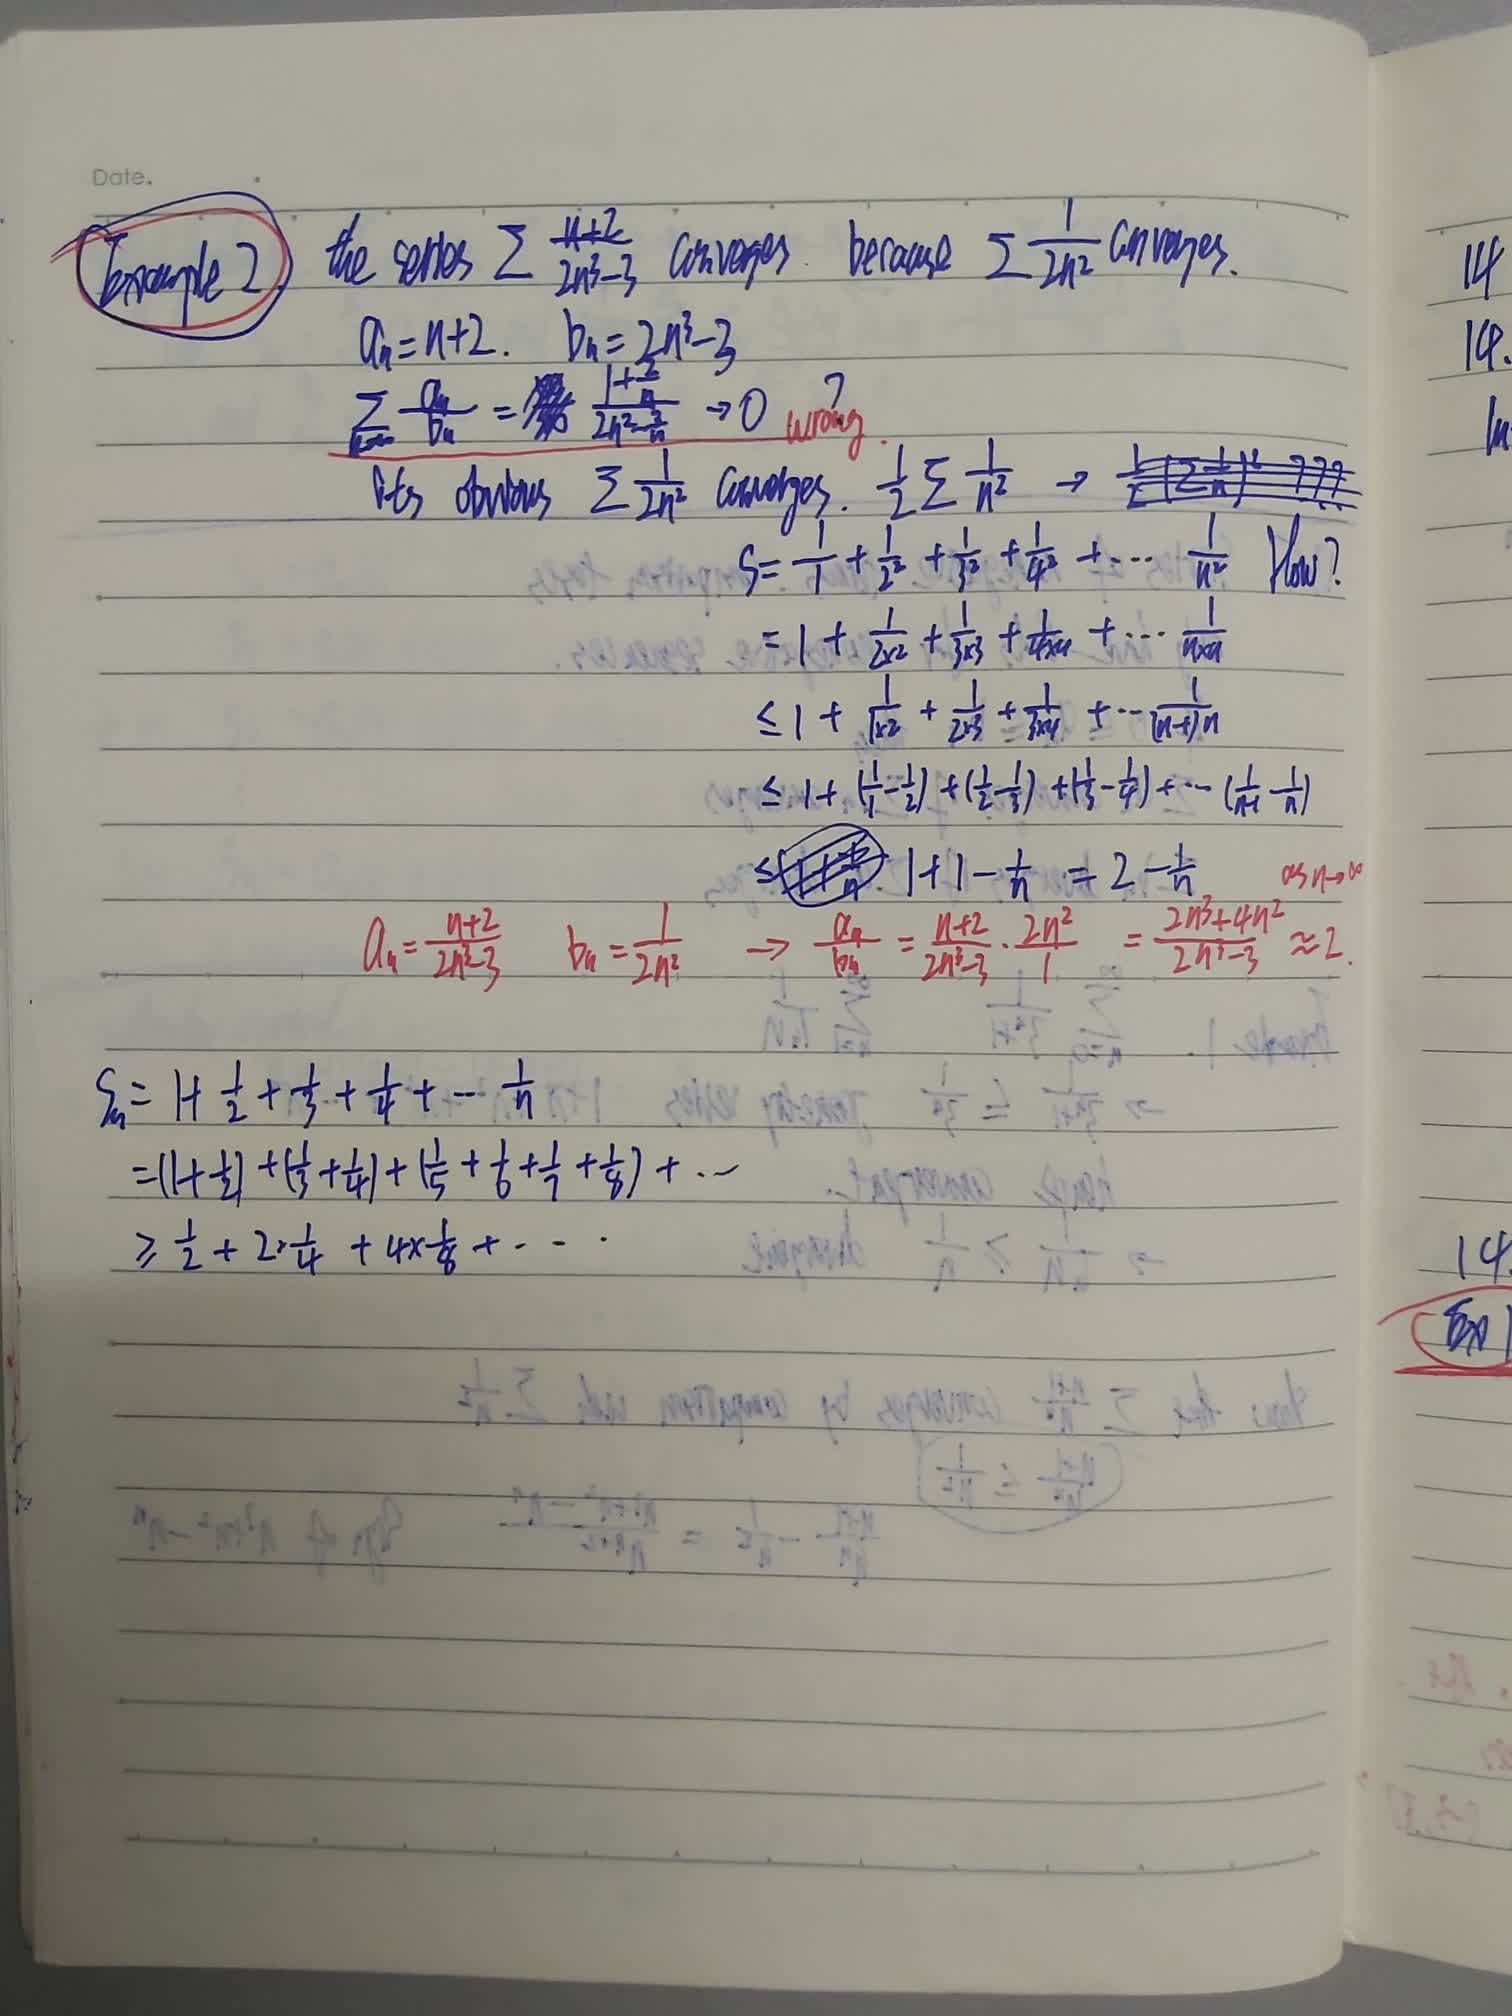 Date.
Example 2 the series ∑ (n+2)/(2n³-3) converges. because ∑ 1/(2n²) converges.
aₙ = n+2. bₙ = 2n³-3
∑ aₙ/bₙ = (1+2/n)/(2n²-3/n) → 0 ? wrong.
its obvious ∑ 1/(2n²) converges. 1/2 ∑ 1/n² →
S = 1/1 + 1/2² + 1/3² + 1/4² + ... 1/n² How?
= 1 + 1/(2×2) + 1/(3×3) + 1/(4×4) + ... 1/(n×n)
≤ 1 + 1/(1×2) + 1/(2×3) + 1/(3×4) + ... 1/((n-1)n)
≤ 1 + (1/1 - 1/2) + (1/2 - 1/3) + (1/3 - 1/4) + ... (1/(n-1) - 1/n)
≤ 1+1 - 1/n = 2 - 1/n
as n→∞
aₙ = (n+2)/(2n³-3) bₙ = 1/(2n²) → aₙ/bₙ = (n+2)/(2n³-3) · 2n²/1 = (2n³+4n²)/(2n³-3) ≈ 2.
Sₙ = 1 + 1/2 + 1/3 + 1/4 + ... 1/n
= (1+1/2) + (1/3+1/4) + (1/5 + 1/6 + 1/7 + 1/8) + ...
≥ 1/2 + 2·1/4 + 4×1/8 + ....
14
14.
14.
Ex 1